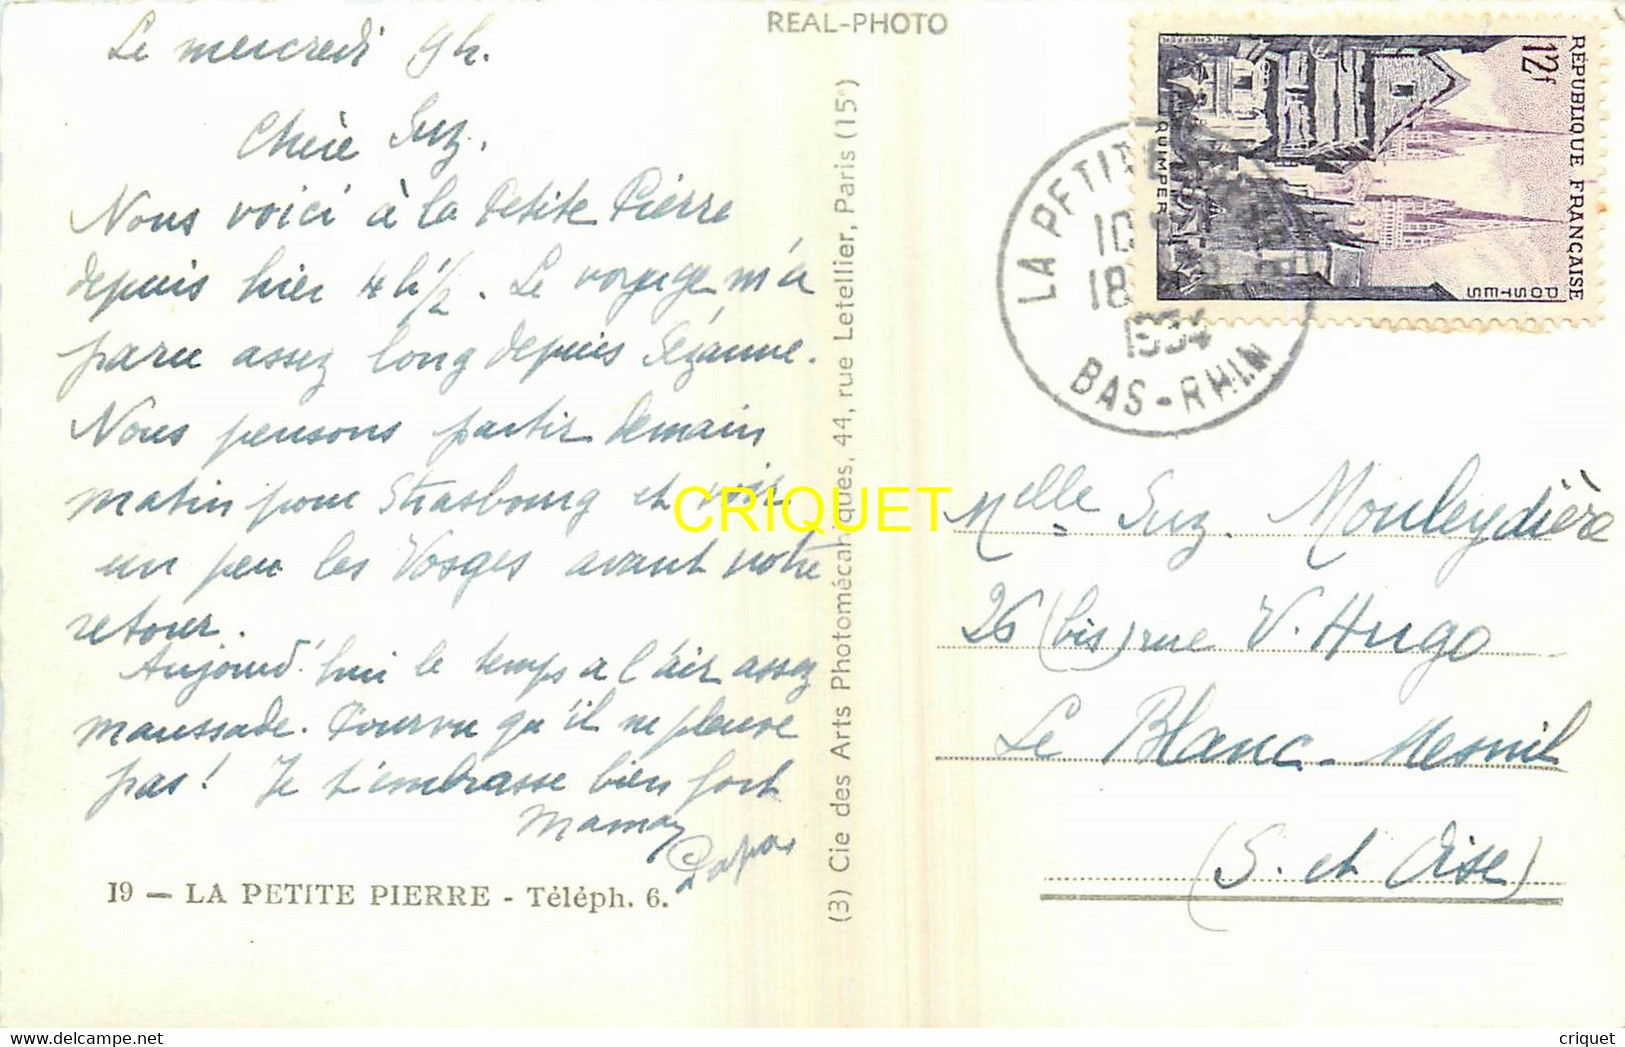 Le mercredi 9h.
Chère Suz.
Nous voici à la Petite Pierre
depuis hier 4h½. Le voyage m'a
paru assez long depuis Sézanne.
Nous pensons partir demain
matin pour Strasbourg et voir
un peu les Vosges avant notre
retour.
Aujourd'hui le temps a l'air assez
maussade. Pourvu qu'il ne pleuve
pas ! Je t'embrasse bien fort
Maman
Papa
19 — LA PETITE PIERRE - Téléph. 6.
REAL-PHOTO
(3) Cie des Arts Photomécaniques, 44, rue Letellier, Paris (15e)
CRIQUET
RÉPUBLIQUE FRANÇAISE
POSTES
12f
QUIMPER
LA PETITE
10
18
1954
BAS-RHIN
Melle Suz. Mouleydière
26 (bis) rue V. Hugo
Le Blanc-Mesnil
(S. et Oise)
criquet
https://www.delcampe.net